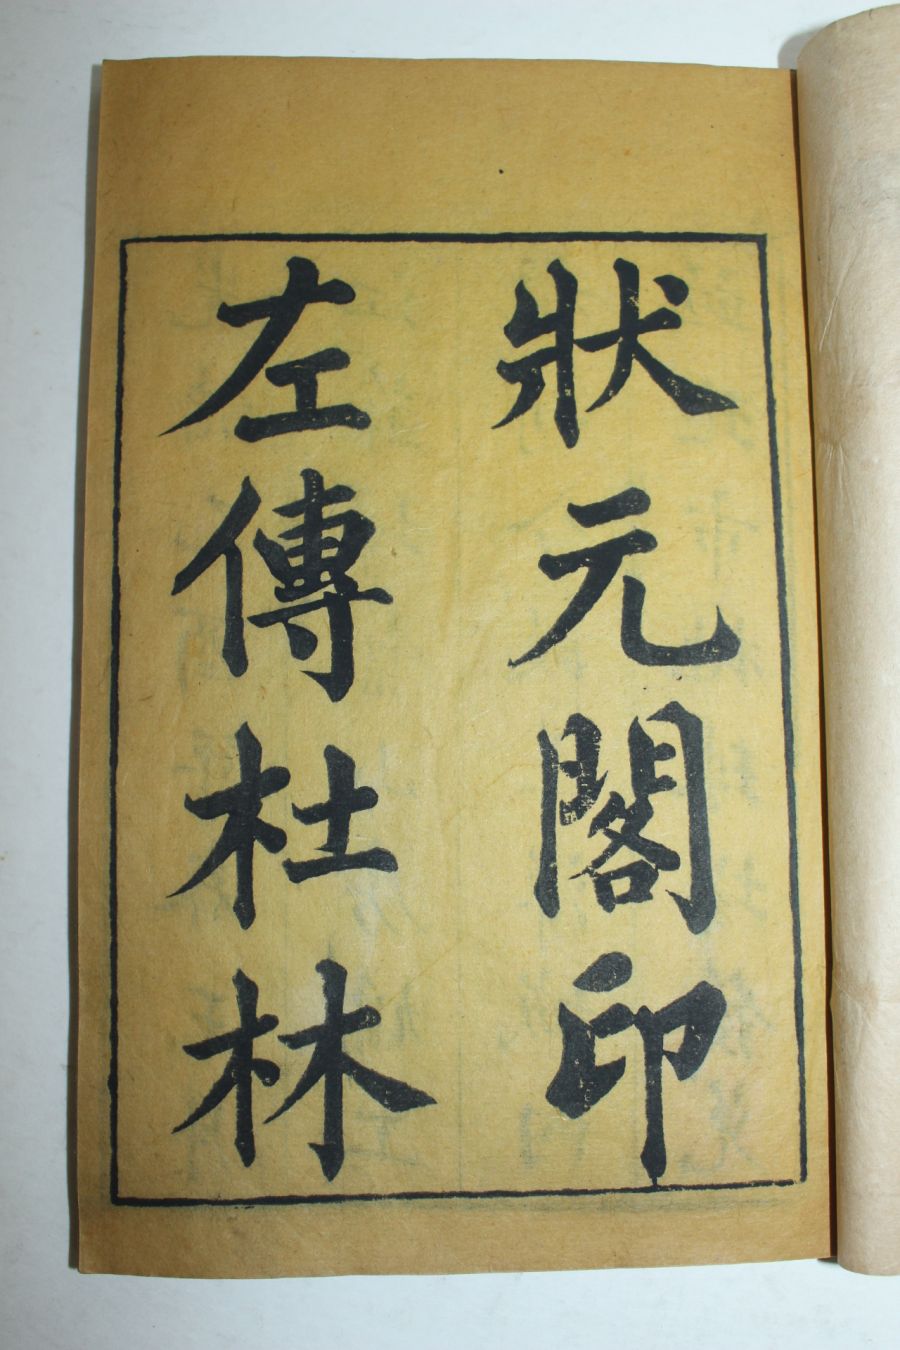 狀元閣印
左傳杜林